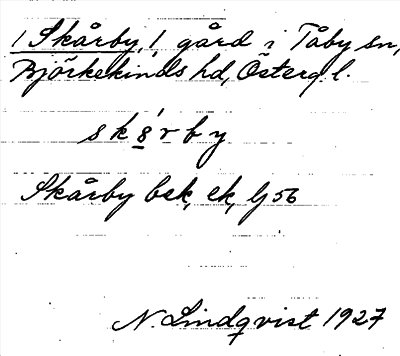 / Skårby, / gård i Tåby sn,
Björkekinds hd, Österg. l.
sk8́rby
Skårby bsk, ek, lj 56
N. Lindqvist 1927